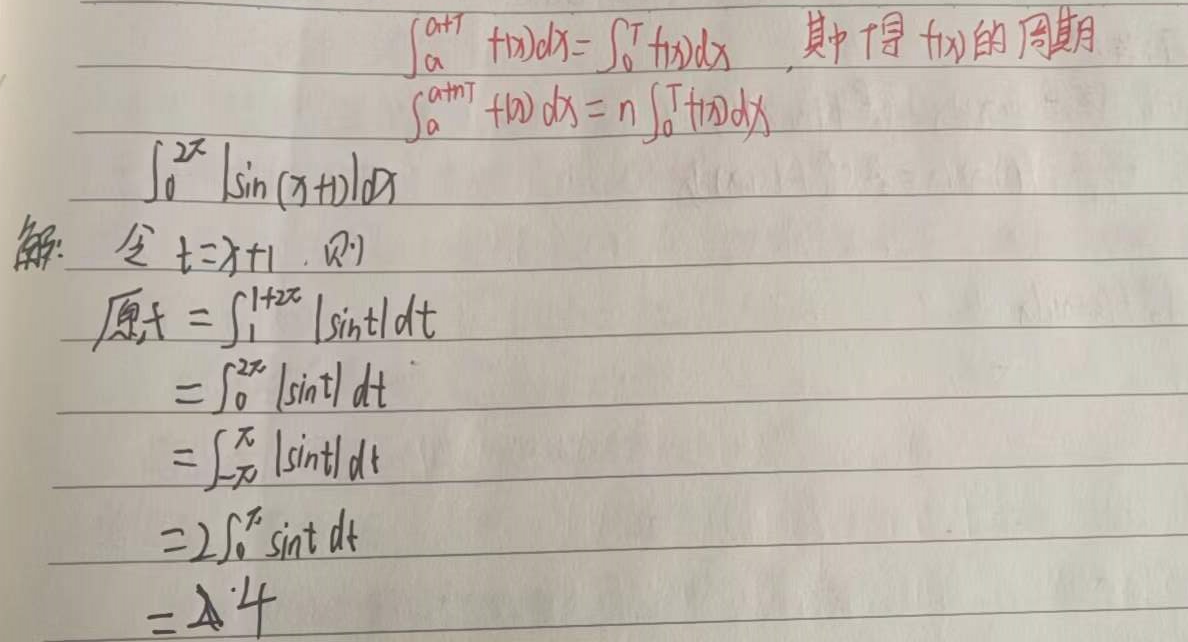 ∫_a^{a+T} f(x)dx = ∫_0^T f(x)dx ,其中T得 f(x)的周期
∫_a^{a+nT} f(x)dx = n∫_0^T f(x)dx
∫_0^{2π} |sin(x+1)|dx
解: 令 t=x+1 . 则
原式 = ∫_1^{1+2π} |sint|dt
= ∫_0^{2π} |sint| dt
= ∫_{-π}^{π} |sint| dt
= 2∫_0^π sint dt
= 4